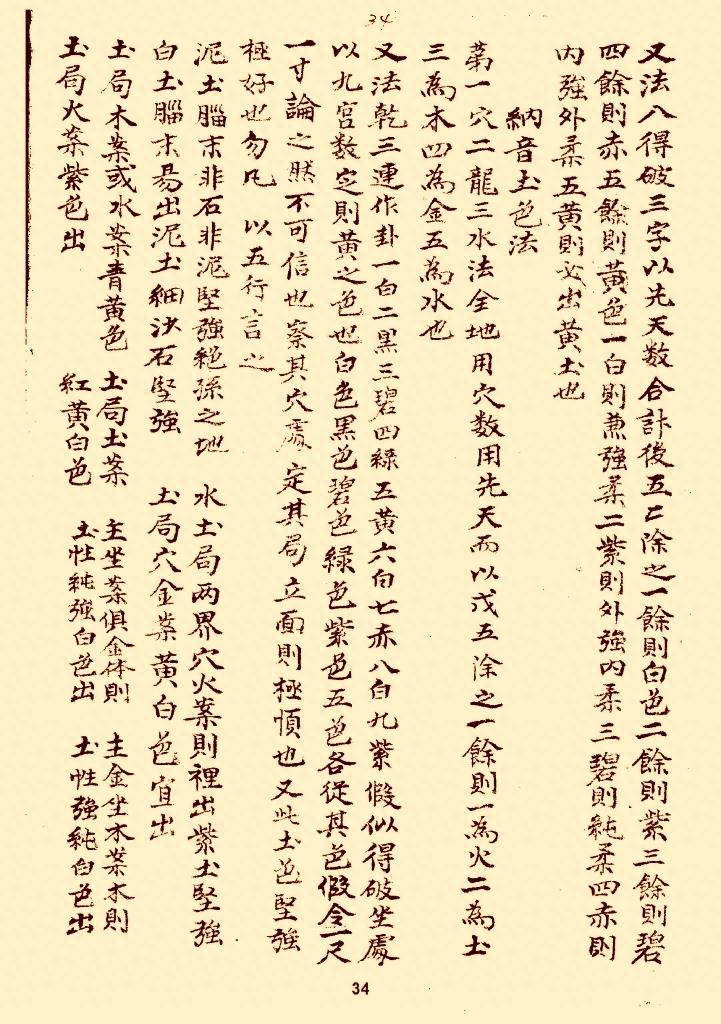 34
又法八得破三字以先天数合計後五二除之一餘則白色二餘則紫三餘則碧
四餘則赤五餘則黃色一白則兼強柔二紫則外強內柔三碧則純柔四赤則
內強外柔五黃則必出黃土也
納音土色法
第一穴二龍三水法全地用穴数用先天而以戊五除之一餘則一為火二為土
三為木四為金五為水也
又法乾三連作卦一白二黑三碧四綠五黃六白七赤八白九紫假似得破坐處
以九宮数定則黃之色也白色黑色碧色綠色紫色五色各從其色假令一尺
一寸論之然不可信也察其穴處定其局立面則極順也又此土色堅強
極好也勿凡 以五行言之
泥土腦末非石非泥堅強絕孫之地 水土局两界穴火案則裡出紫土堅強
白土腦末易出泥土細沙石堅強 土局穴金案黃白色宜出
土局木案或水案青黃色 土局土案紅黃白色 主坐案俱金体則土性純強白色出 主金坐木案木則土性強純白色出
土局火案紫色出
34